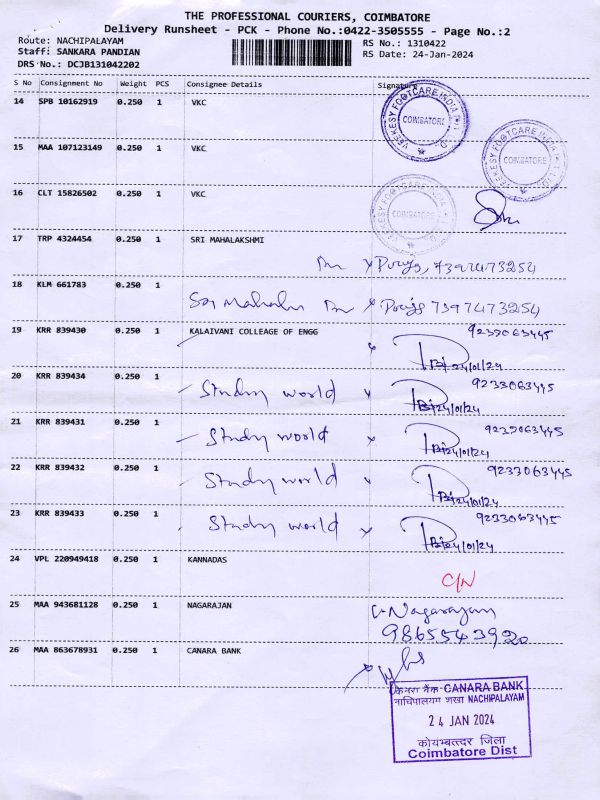 THE PROFESSIONAL COURIERS, COIMBATORE
Delivery Runsheet - PCK - Phone No.:0422-3505555 - Page No.:2
Route: NACHIPALAYAM
RS No.: 1310422
Staff: SANKARA PANDIAN
RS Date: 24-Jan-2024
DRS No.: DCJB131042202
S No Consignment No Weight PCS Consignee Details Signature
14 SPB 10162919 0.250 1 VKC
VEEKESY FOOTCARE INDIA COIMBATORE
15 MAA 107123149 0.250 1 VKC
VEEKESY FOOTCARE INDIA COIMBATORE
16 CLT 15826502 0.250 1 VKC
COIMBATORE
17 TRP 4324454 0.250 1 SRI MAHALAKSHMI
7397473254
18 KLM 661783 0.250 1
7397473254
19 KRR 839430 0.250 1 KALAIVANI COLLEAGE OF ENGG
9233063445
24/01/24
20 KRR 839434 0.250 1 Study world 9233063445
24/01/24
21 KRR 839431 0.250 1 Study world 9233063445
24/01/24
22 KRR 839432 0.250 1 Study world 9233063445
24/01/24
23 KRR 839433 0.250 1 Study world 9233063445
24/01/24
24 VPL 220949418 0.250 1 KANNADAS
C/N
25 MAA 943681128 0.250 1 NAGARAJAN
Nagarajan
9865543920
26 MAA 863678931 0.250 1 CANARA BANK
केनरा बैंक CANARA BANK
NACHIPALAYAM
24 JAN 2024
Coimbatore Dist